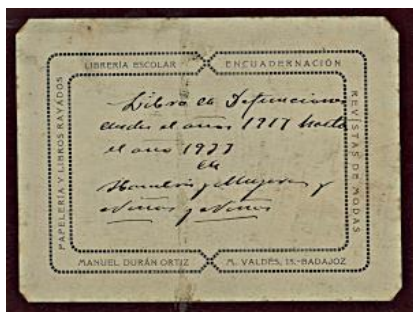 LIBRERÍA ESCOLAR ENCUADERNACIÓN
PAPELERÍA Y LIBROS RAYADOS
REVISTAS DE MODAS
Libro de Defunciones
desde el años 1917 hasta
el año 1933
de
Hombres y Mujeres y
Niños y Niñas
MANUEL DURÁN ORTIZ M. VALDÉS, 15.-BADAJOZ